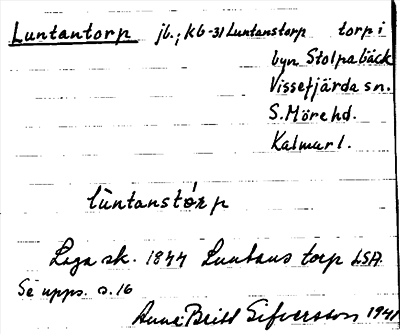 Luntantorp jb.; kb-31 Luntanstorp torp i
byn Stolpabäck
Vissefjärda sn.
S. Möre hd.
Kalmar l.
lùntanstór̀p
Laga sk. 1844 Luntans torp LSA
Se upps. s. 16
Anna-Britt Sifversson 1941